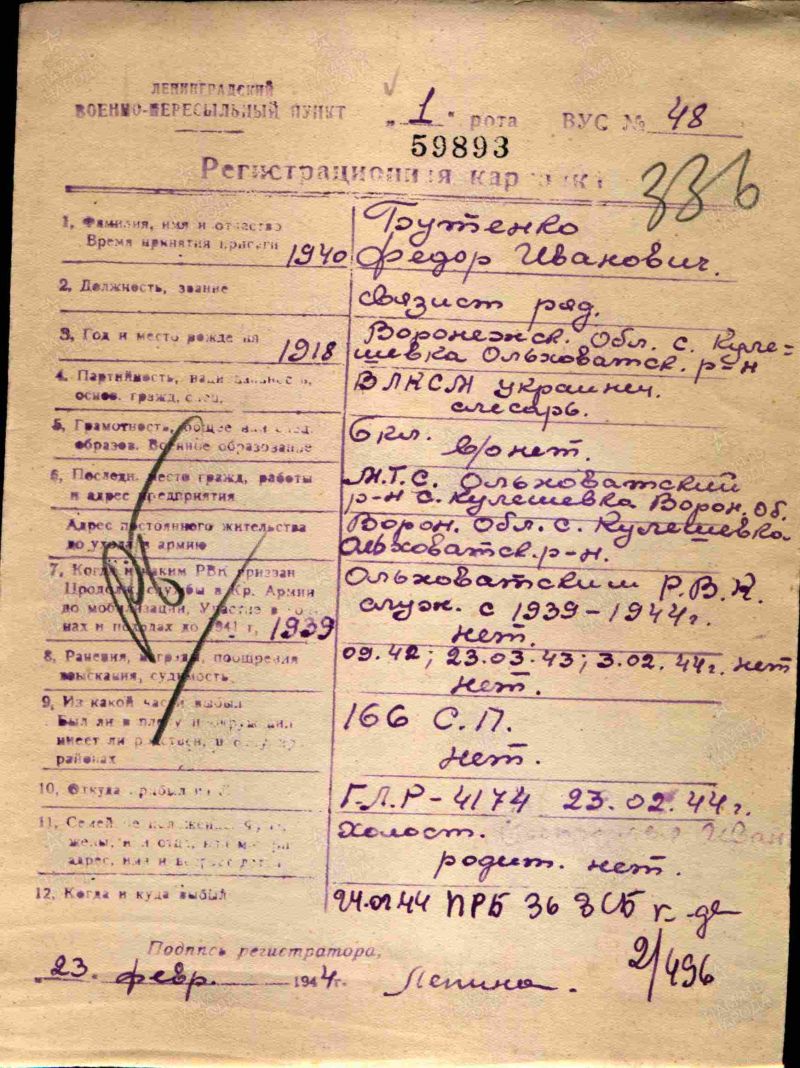 ЛЕНИНГРАДСКИЙ
ВОЕННО-ПЕРЕСЫЛЬНЫЙ ПУНКТ
„1“ рота ВУС № 48
59893
Регистрационная карточка
336
1, Фамилия, имя и отчество
Время принятия присяги 1940
Грутенко
Федор Иванович.
2, Должность, звание
связист ряд.
3, Год и место рождения 1918
Воронежск. Обл. с. Куле=
шевка Ольховатск. р-н
4. Партийность, национальность,
основ. гражд. спец.
ВЛКСМ украинец.
слесарь.
5, Грамотность, общее или спец.
образов. Военное образование
6 кл.
в/о нет.
6, Последн. место гражд, работы
и адрес предприятия
М.Т.С. Ольховатский
р-н с. Кулешевка Ворон. Об.
Адрес постоянного жительства
до ухода в армию
Ворон. Обл. с. Кулешевка
Ольховатск. р-н.
7, Когда и каким РВК призван
Продолж. службы в Кр. Армии
до мобилизации, Участие в
и походах до 1941 г, 1939
Ольховатским Р.В.К.
служ. с 1939-1944г.
нет.
8, Ранения, награды, поощрения
взыскания, судимость.
09.42; 23.03.43; 3.02.44г. нет
нет.
9, Из какой части выбыл
Был ли в плену и окружении
имеет ли родствен, в
районах
166 С.П.
нет.
10, Откуда прибыл
Г.Л.Р-4174 23.02.44г.
11, Семейное положение
жены, адрес, имя и возраст детей
холост. Иван
родит. нет.
12, Когда и куда выбыл
24.02.44 ПРБ 36 ЗСБ
Подпись регистратора,
„23. февр. 1944г. Лепина.
2/496